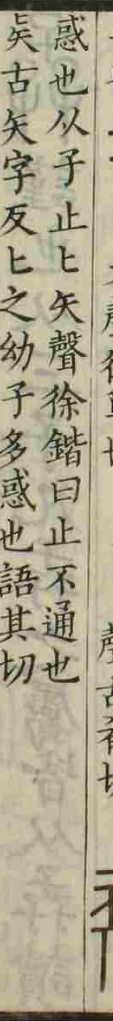 惑也从子止匕矢聲徐鍇曰止不通也
𠤕古矢字反匕之幼子多惑也語其切